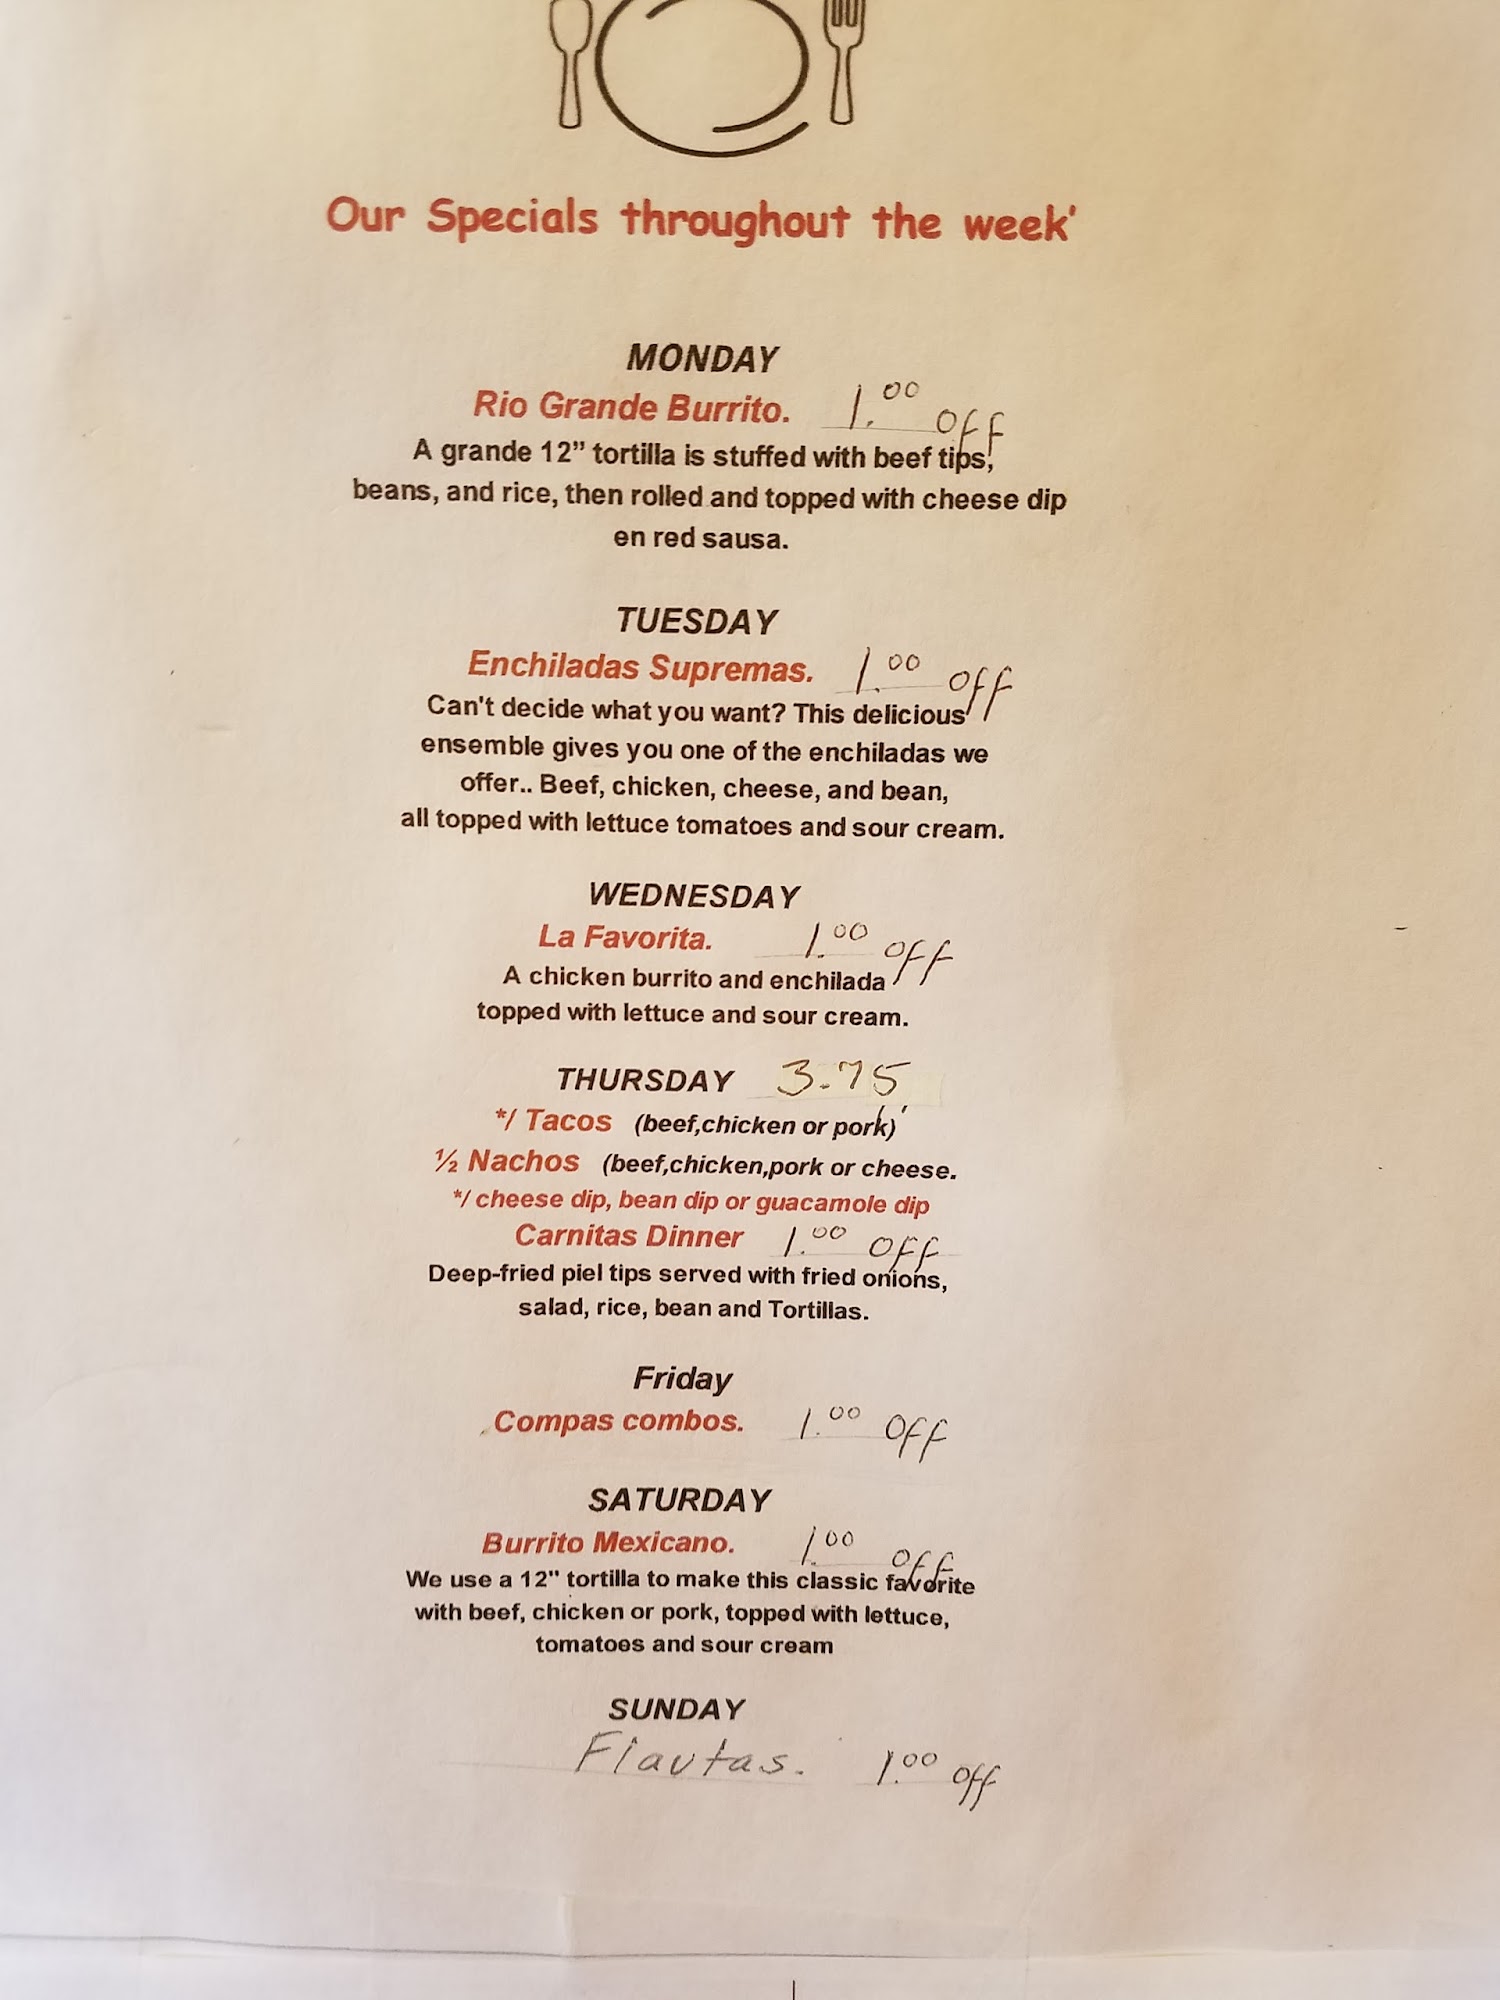 Our Specials throughout the week'
MONDAY
Rio Grande Burrito. 1.00 off
A grande 12” tortilla is stuffed with beef tips,
beans, and rice, then rolled and topped with cheese dip
en red sausa.
TUESDAY
Enchiladas Supremas. 1.00 off
Can't decide what you want? This delicious
ensemble gives you one of the enchiladas we
offer.. Beef, chicken, cheese, and bean,
all topped with lettuce tomatoes and sour cream.
WEDNESDAY
La Favorita. 1.00 off
A chicken burrito and enchilada
topped with lettuce and sour cream.
THURSDAY 3.75
*/ Tacos (beef,chicken or pork)
½ Nachos (beef,chicken,pork or cheese.
*/ cheese dip, bean dip or guacamole dip
Carnitas Dinner 1.00 off
Deep-fried piel tips served with fried onions,
salad, rice, bean and Tortillas.
Friday
Compas combos. 1.00 off
SATURDAY
Burrito Mexicano. 1.00 off
We use a 12" tortilla to make this classic favorite
with beef, chicken or pork, topped with lettuce,
tomatoes and sour cream
SUNDAY
Flautas. 1.00 off